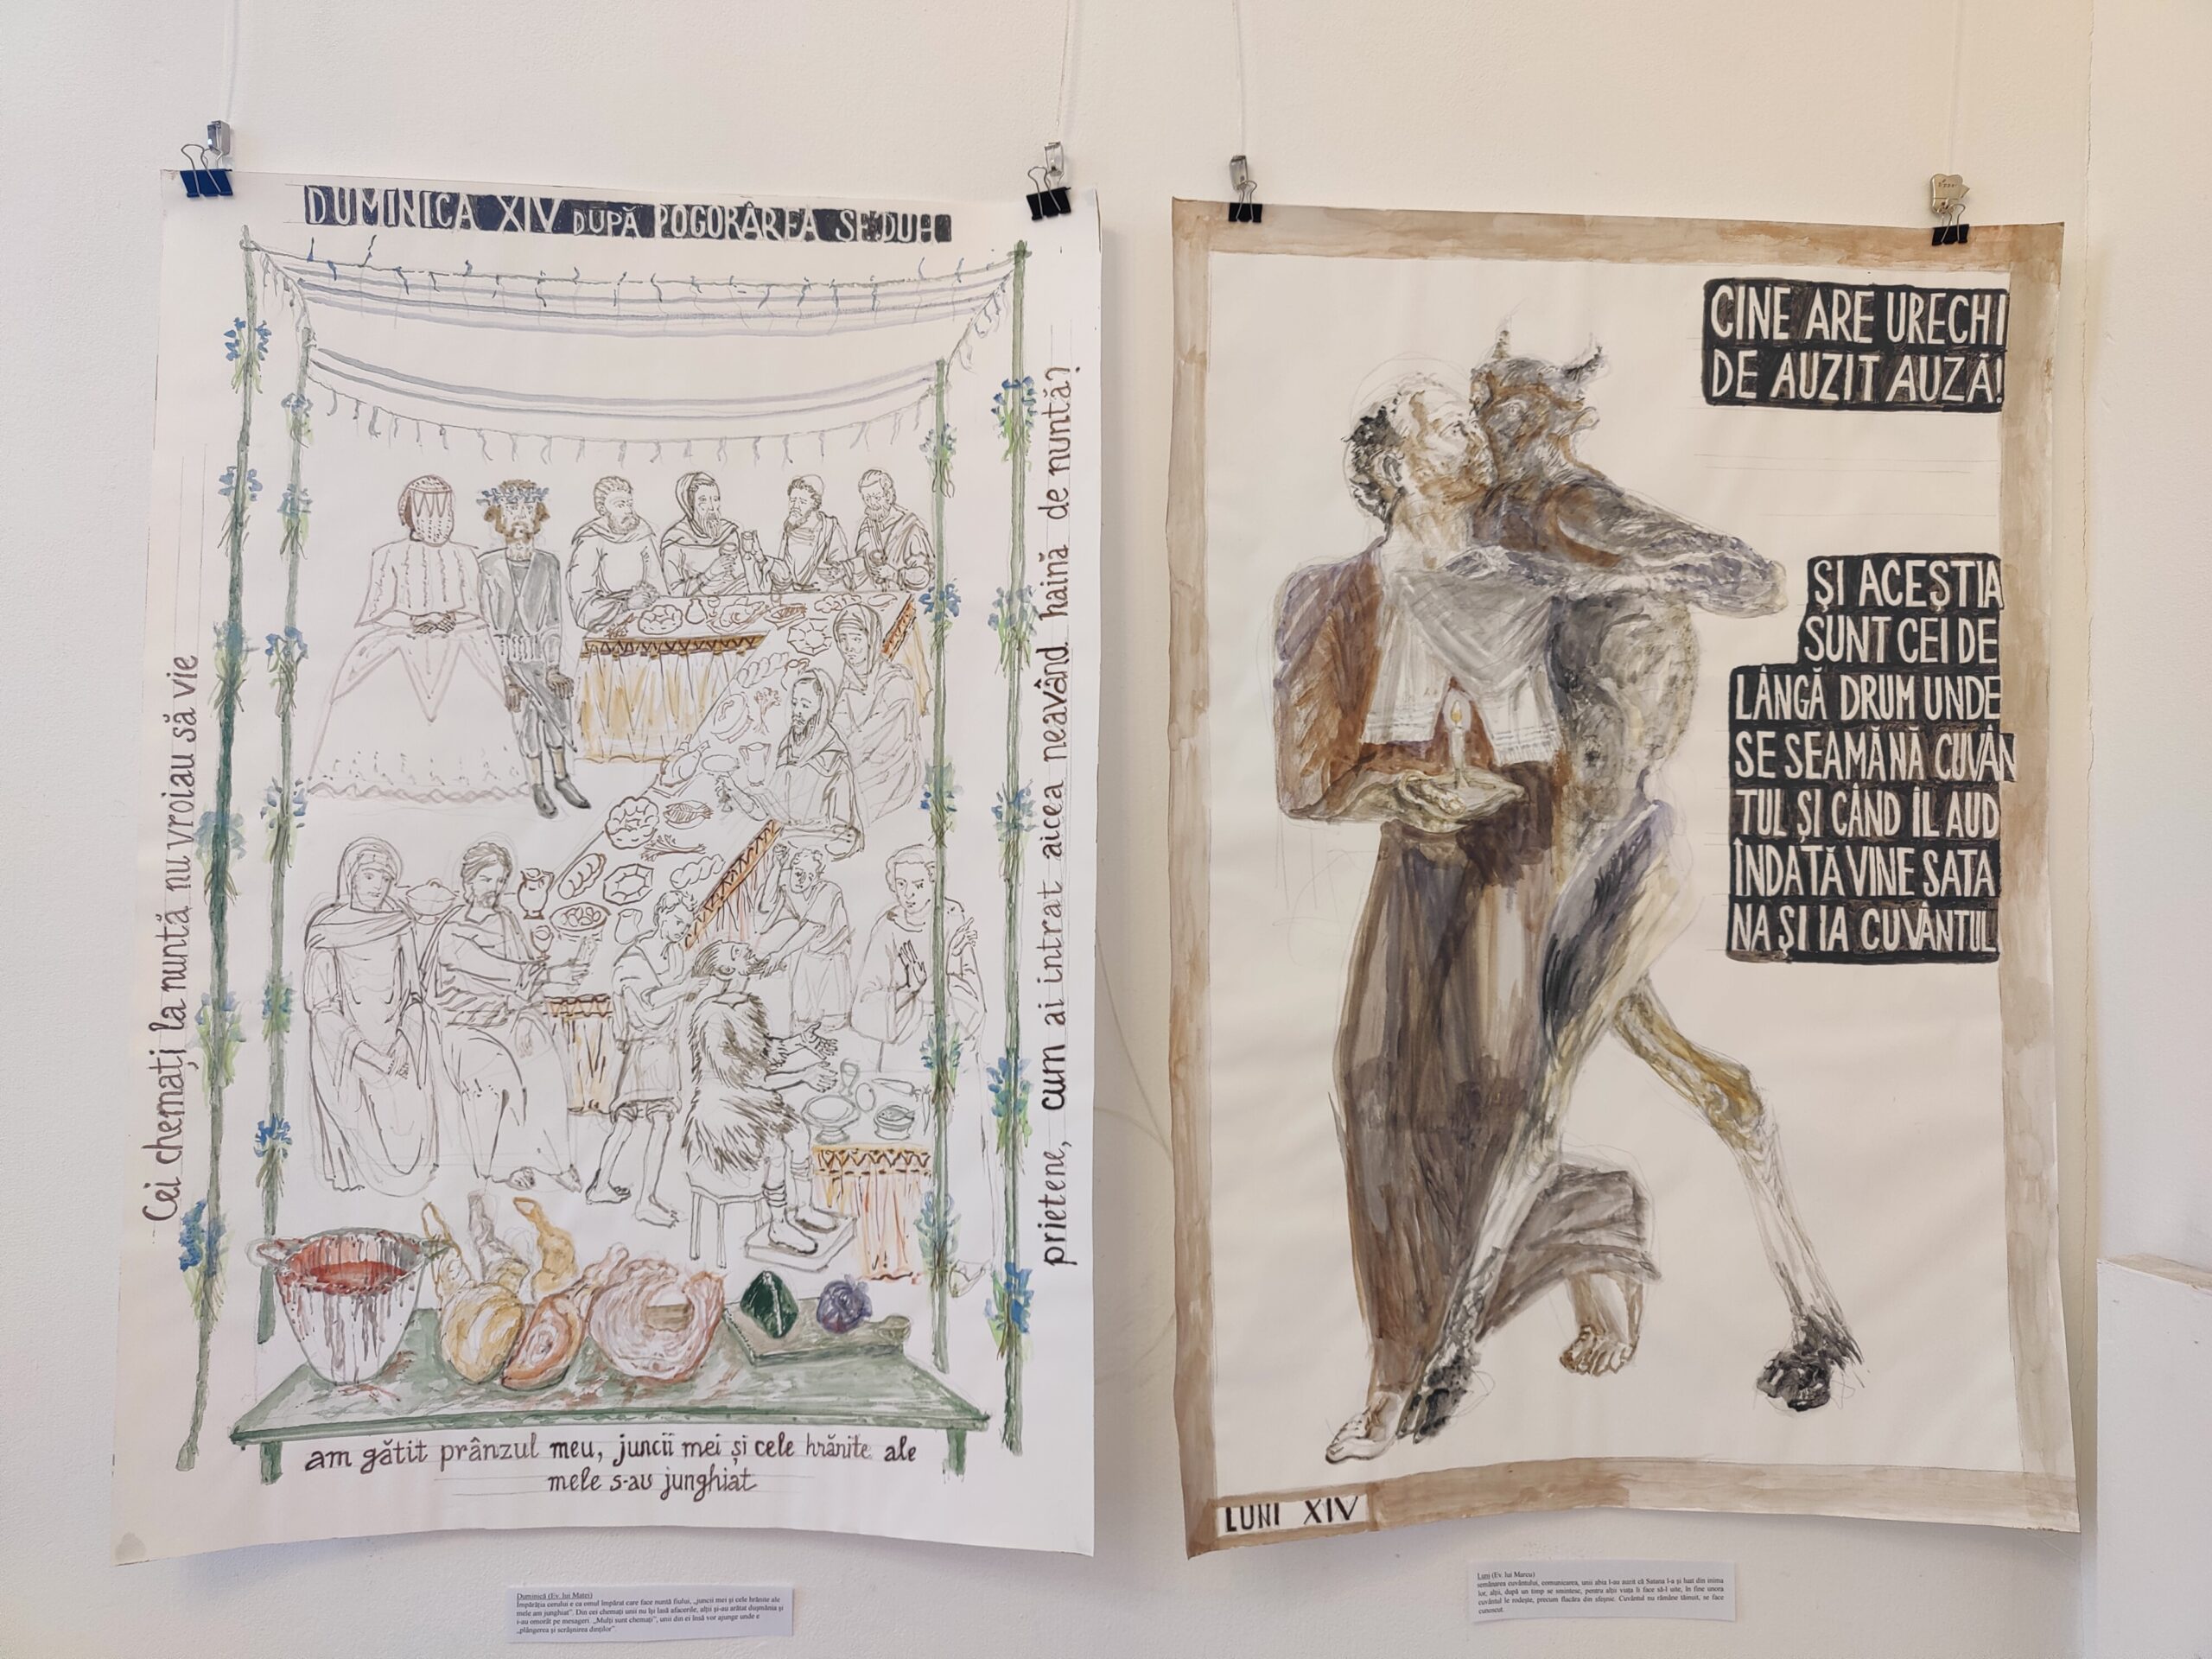 DUMINICA XIV DUPĂ POGORÂREA SF.DUH
Cei chemați la nuntă nu vroiau să vie
prietene, cum ai intrat aicea neavând haină de nuntă?
am gătit prânzul meu, juncii mei și cele hrănite ale
mele s-au junghiat
Duminică (Ev. lui Matei)
Împărăția cerului e ca omul împărat care face nuntă fiului, „juncii mei și cele hrănite ale
mele am junghiat”. Din cei chemați unii nu își lasă afacerile, alții și-au arătat dușmănia și
i-au omorât pe mesageri. „Mulți sunt chemați”, unii din ei însă vor ajunge unde e
„plângerea și scrâșnirea dinților”.
CINE ARE URECHI
DE AUZIT AUZĂ!
ȘI ACEȘTIA
SUNT CEI DE
LÂNGĂ DRUM UNDE
SE SEAMĂNĂ CUVÂN
TUL ȘI CÂND ÎL AUD
ÎNDATĂ VINE SATA
NA ȘI IA CUVÂNTUL
LUNI XIV
Luni (Ev. lui Marcu)
semănarea cuvântului, comunicarea, unii abia l-au auzit că Satana l-a și luat din inima
lor, alții, după un timp se smintesc, pentru alții viața îi face să-l uite, în fine unora
cuvântul le rodește, precum flacăra din sfeșnic. Cuvântul nu rămâne tăinuit, se face
cunoscut.